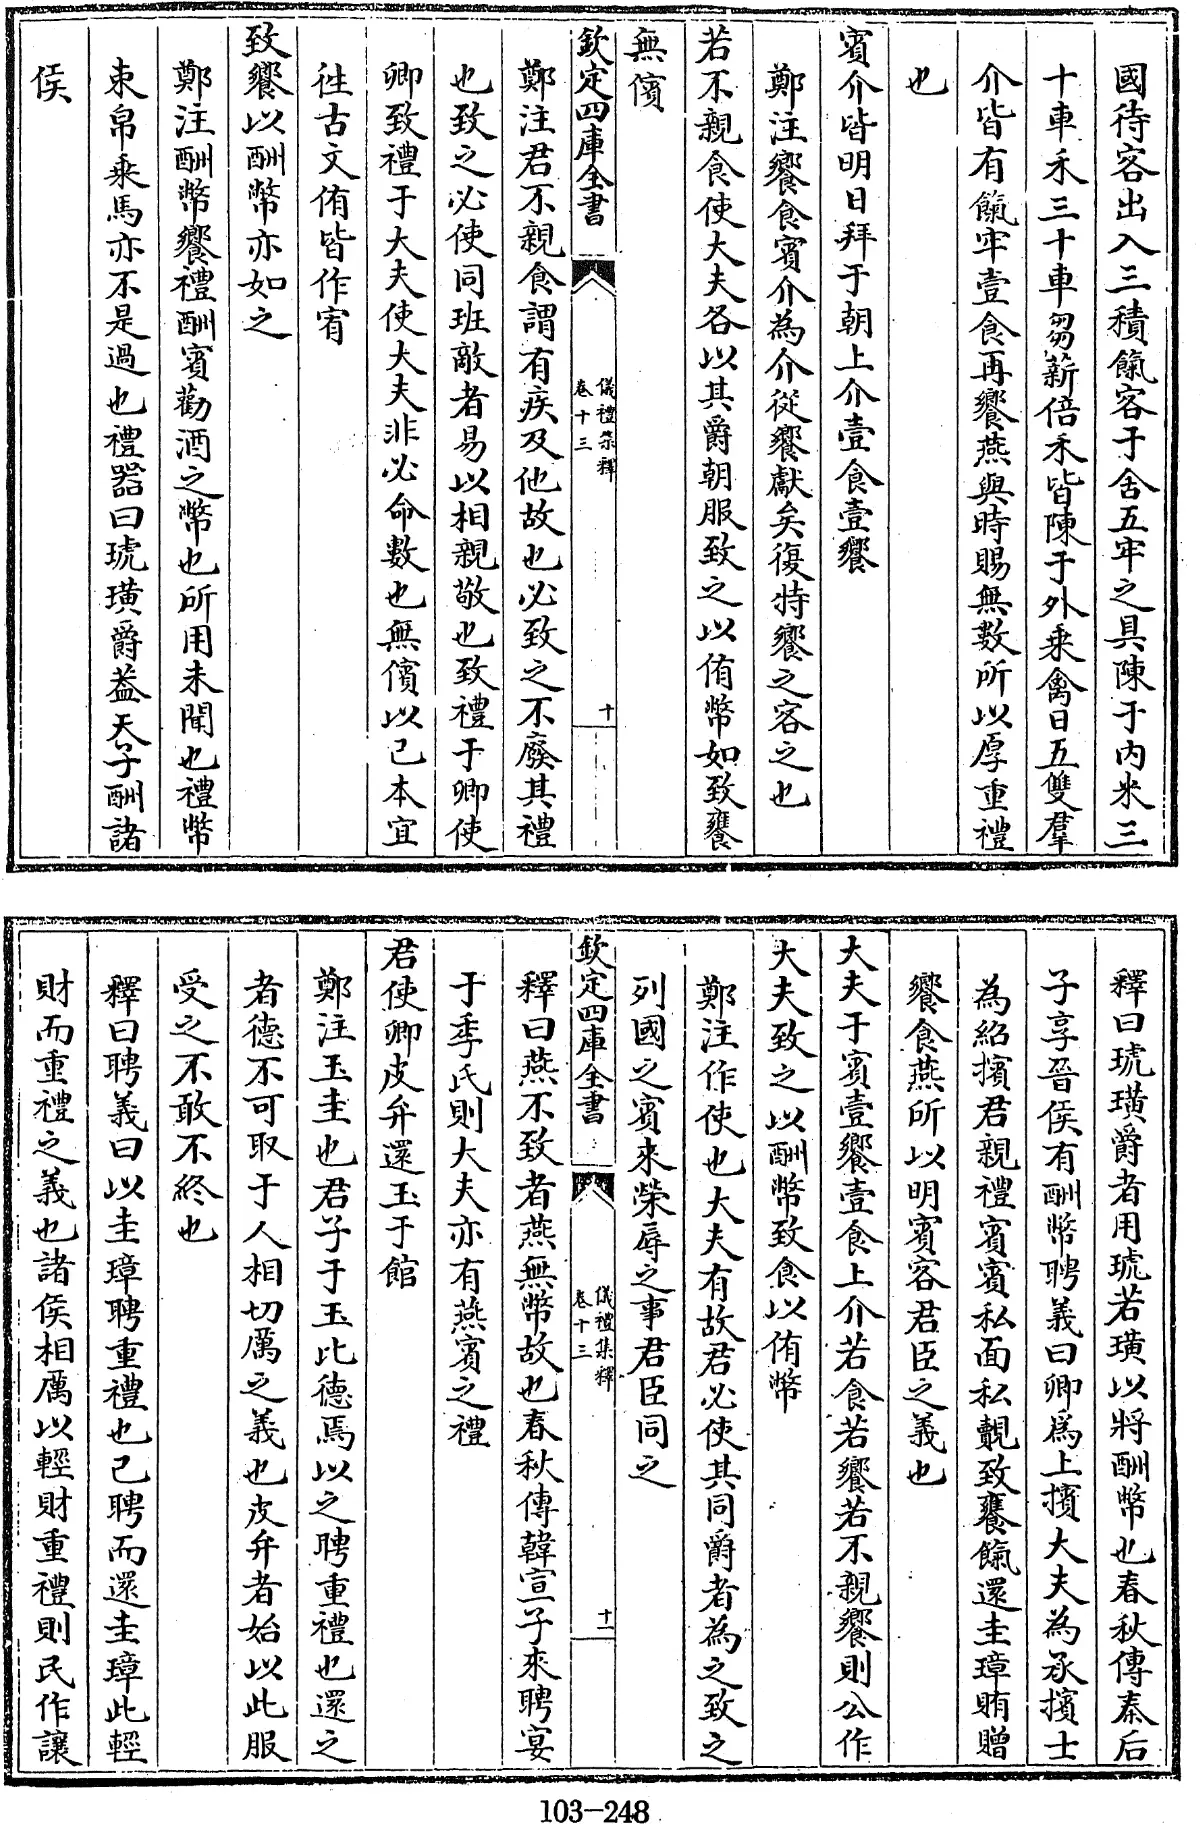 國待客出入三積餼客于舍五牢之具陳于内米三
十車禾三十車芻薪倍禾皆陳于外乘禽日五雙羣
介皆有餼牢壹食再饗燕與時賜無數所以厚重禮
也
賓介皆明日拜于朝上介壹食壹饗
鄭注饗食賓介為介從饗獻矣復特饗之客之也
若不親食使大夫各以其爵朝服致之以侑幣如致饔
無儐
欽定四庫全書
儀禮集釋
卷十三
十
鄭注君不親食謂有疾及他故也必致之不廢其禮
也致之必使同班敵者易以相親敬也致禮于卿使
卿致禮于大夫使大夫非必命數也無儐以己本宜
徃古文侑皆作宥
致饗以酬幣亦如之
鄭注酬幣饗禮酬賓勸酒之幣也所用未聞也禮幣
束帛乘馬亦不是過也禮器曰琥璜爵葢天子酬諸
侯
釋曰琥璜爵者用琥若璜以將酬幣也春秋傳秦后
子享晉侯有酬幣聘義曰卿爲上擯大夫為承擯士
為紹擯君親禮賓賓私面私覿致饔餼還圭璋賄贈
饗食燕所以明賓客君臣之義也
大夫于賓壹饗壹食上介若食若饗若不親饗則公作
大夫致之以酬幣致食以侑幣
鄭注作使也大夫有故君必使其同爵者為之致之
列國之賓來榮辱之事君臣同之
欽定四庫全書
儀禮集釋
卷十三
十一
釋曰燕不致者燕無幣故也春秋傳韓宣子來聘宴
于季氏則大夫亦有燕賓之禮
君使卿皮弁還玉于館
鄭注玉圭也君子于玉比德焉以之聘重禮也還之
者德不可取于人相切厲之義也皮弁者始以此服
受之不敢不終也
釋曰聘義曰以圭璋聘重禮也已聘而還圭璋此輕
財而重禮之義也諸侯相厲以輕財重禮則民作讓
103-248